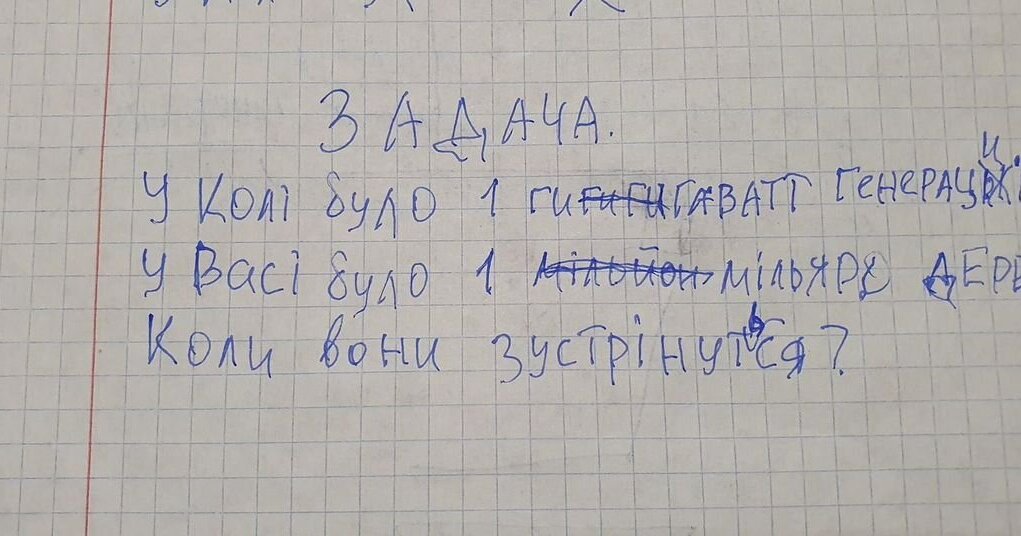 ЗАДАЧА.
У Колі було 1 гигаватт генерації
У Васі було 1 мільярд дере
Коли вони зустрінуться?